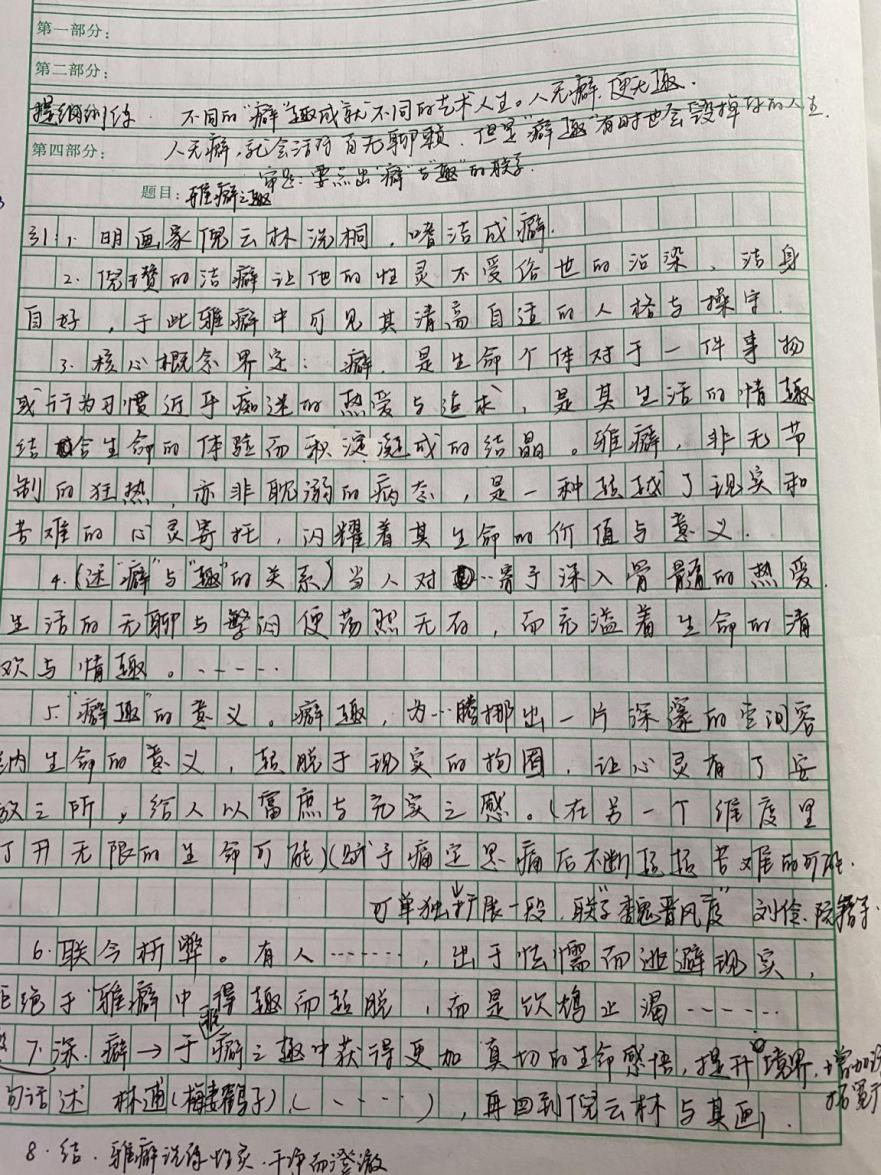 第一部分：
第二部分：
提纲训练. 不同的“癖”趣成就不同的艺术人生。人无癖，便无趣.
人无癖，就会活得百无聊赖. 但是“癖趣”有时也会毁掉你的人生.
第四部分：
审题：要点出“癖”与“趣”的联系.
题目：雅癖之趣
引：1. 明画家倪云林洗桐，嗜洁成癖.
2. 倪瓒的洁癖让他的性灵不受俗世的沾染，洁身
自好，于此雅癖中可见其清高自适的人格与操守.
3. 核心概念界定：癖，是生命个体对于一件事物
或行为习惯近乎痴迷的热爱与追求，是其生活的情趣
结合生命的体验而积淀凝成的结晶。雅癖，非无节
制的狂热，亦非耽溺的病态，是一种超越了现实和
苦难的心灵寄托，闪耀着其生命的价值与意义.
4.(述“癖”与“趣”的关系)当人对…寄予深入骨髓的热爱，
生活的无聊与繁闷便荡然无存，而充溢着生命的清
欢与情趣。……
5.“癖趣”的意义。癖趣，为…腾挪出一片深邃的空间容
纳生命的意义，超脱于现实的拘囿，让心灵有了安
放之所，给人以富庶与充实之感。(在另一个维度里
开无限的生命可能)(赋予痛定思痛后不断超越苦难的可能.
可单独扩展一段，联系“魏晋风度”刘伶、阮籍等.
6.联今析弊。有人……，出于怯懦而逃避现实，
拒绝于雅癖中得趣而超脱，而是饮鸩止渴……
7.深.癖→于癖之趣中获得更加真切的生命感悟，提升境界，增加
句话述 林逋(梅妻鹤子)(……)，再回到倪云林与其画.
8.结. 雅癖 干净而澄澈